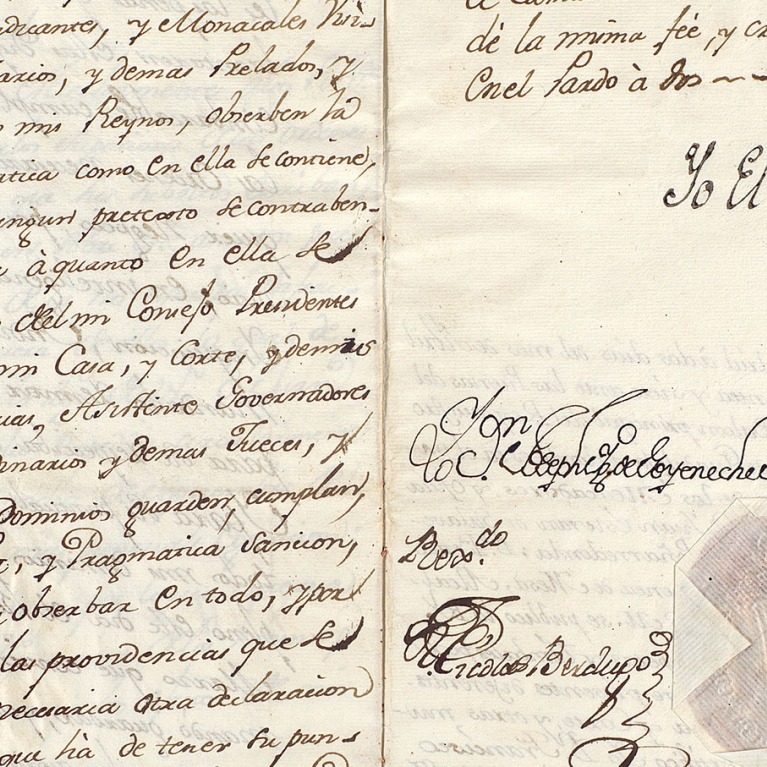 dicantes, y Monacales Visi-
tarios, y demas Prelados, y
mis Reynos, obserben la
atica como en ella se contiene,
ningun pretexto se contraben-
à quanto en ella se
del mi Consejo Presidentes
mi Casa, y Corte, y demas
cias, Asistente Governadores
dinarios y demas Jueces, y
Dominios guarden, cumplan,
y Pragmatica Sancion,
obserbar en todo, y por
las providencias que se
necesaria otra declaracion
que ha de tener su pun-
de la misma fée, y cr
En el Pardo à dos
Yo El
Yo Dn Joseph Ig.º de Goyeneche
Rex.do
Nicolas Berdugo